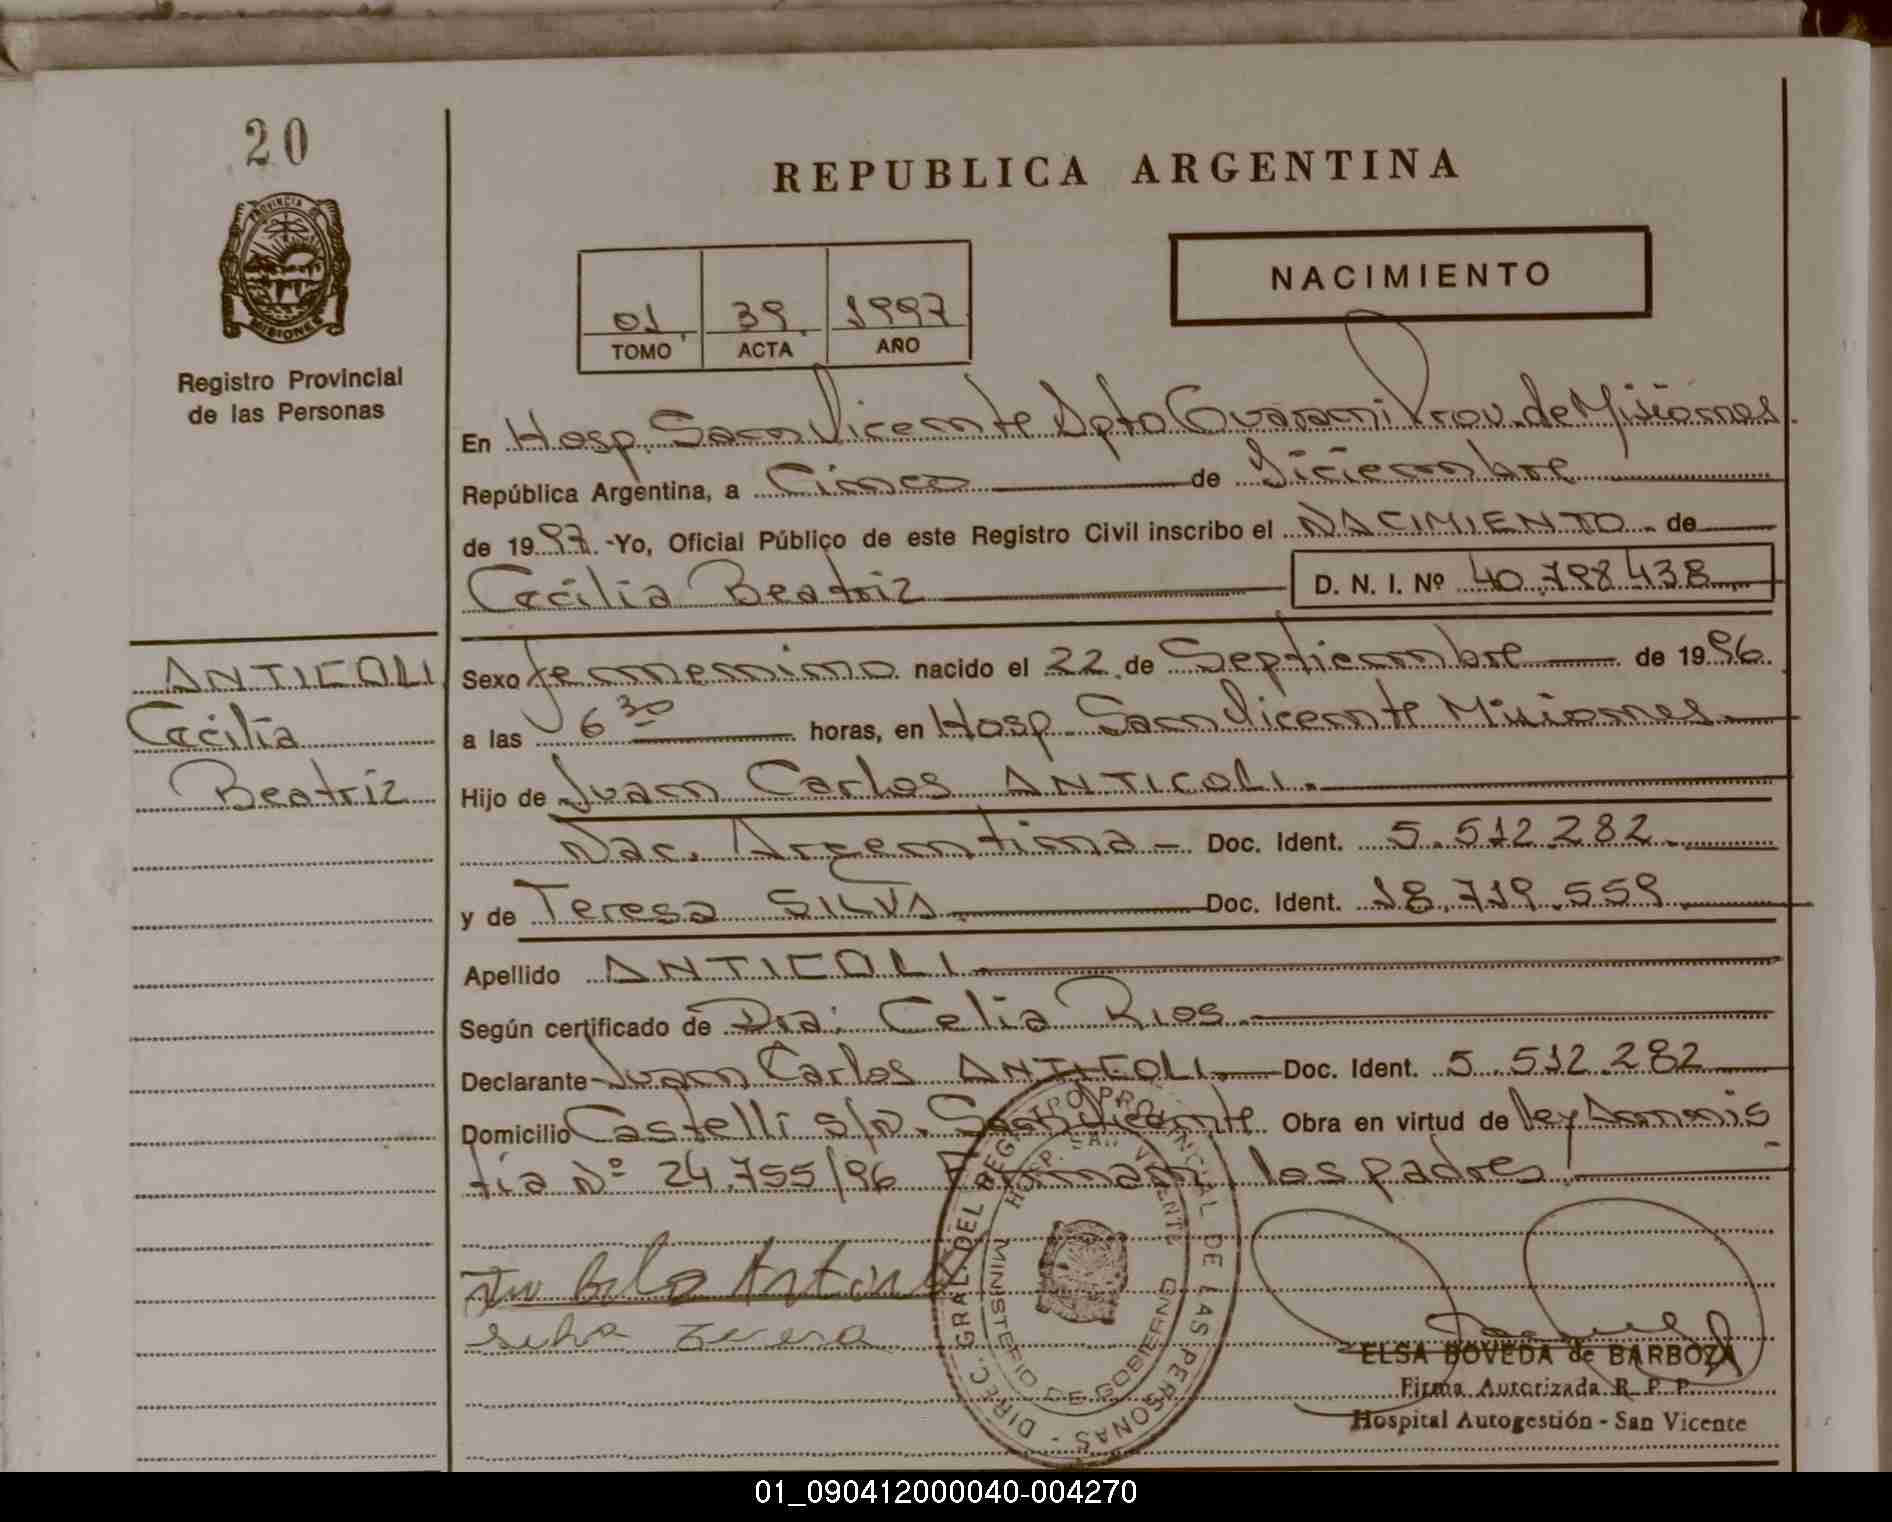 20
PROVINCIA DE
MISIONES
Registro Provincial
de las Personas
REPUBLICA ARGENTINA
NACIMIENTO
01 39 1997
TOMO ACTA AÑO
En Hosp. San Vicente Dpto Guarani Prov. de Misiones.
República Argentina, a Cinco de Diciembre
de 1997. -Yo, Oficial Público de este Registro Civil inscribo el NACIMIENTO. de
Cecilia Beatriz D. N. I. Nº 40.798438
ANTICOLI
Cecilia
Beatriz
Sexo femenino nacido el 22 de Septiembre de 1996.
a las 6 30 horas, en Hosp. San Vicente Misiones
Hijo de Juan Carlos ANTICOLI.
Nac. Argentina - Doc. Ident. 5.512.282.
y de Teresa SILVA Doc. Ident. 18.719.559
Apellido ANTICOLI
Según certificado de Dra. Celia Rios.
Declarante Juan Carlos ANTICOLI Doc. Ident. 5.512.282
Domicilio Castelli s/n. San Vicente Obra en virtud de ley Amnis
tía Nº 24.755/96 Firman los padres.
DIREC. GRAL. DEL REGISTRO PROVINCIAL DE LAS PERSONAS -
HOSP. SAN VICENTE
MINISTERIO DE GOBIERNO
silva teresa
ELSA BOVEDA de BARBOZA
Firma Autorizada R. P. P.
Hospital Autogestión - San Vicente
01_090412000040-004270